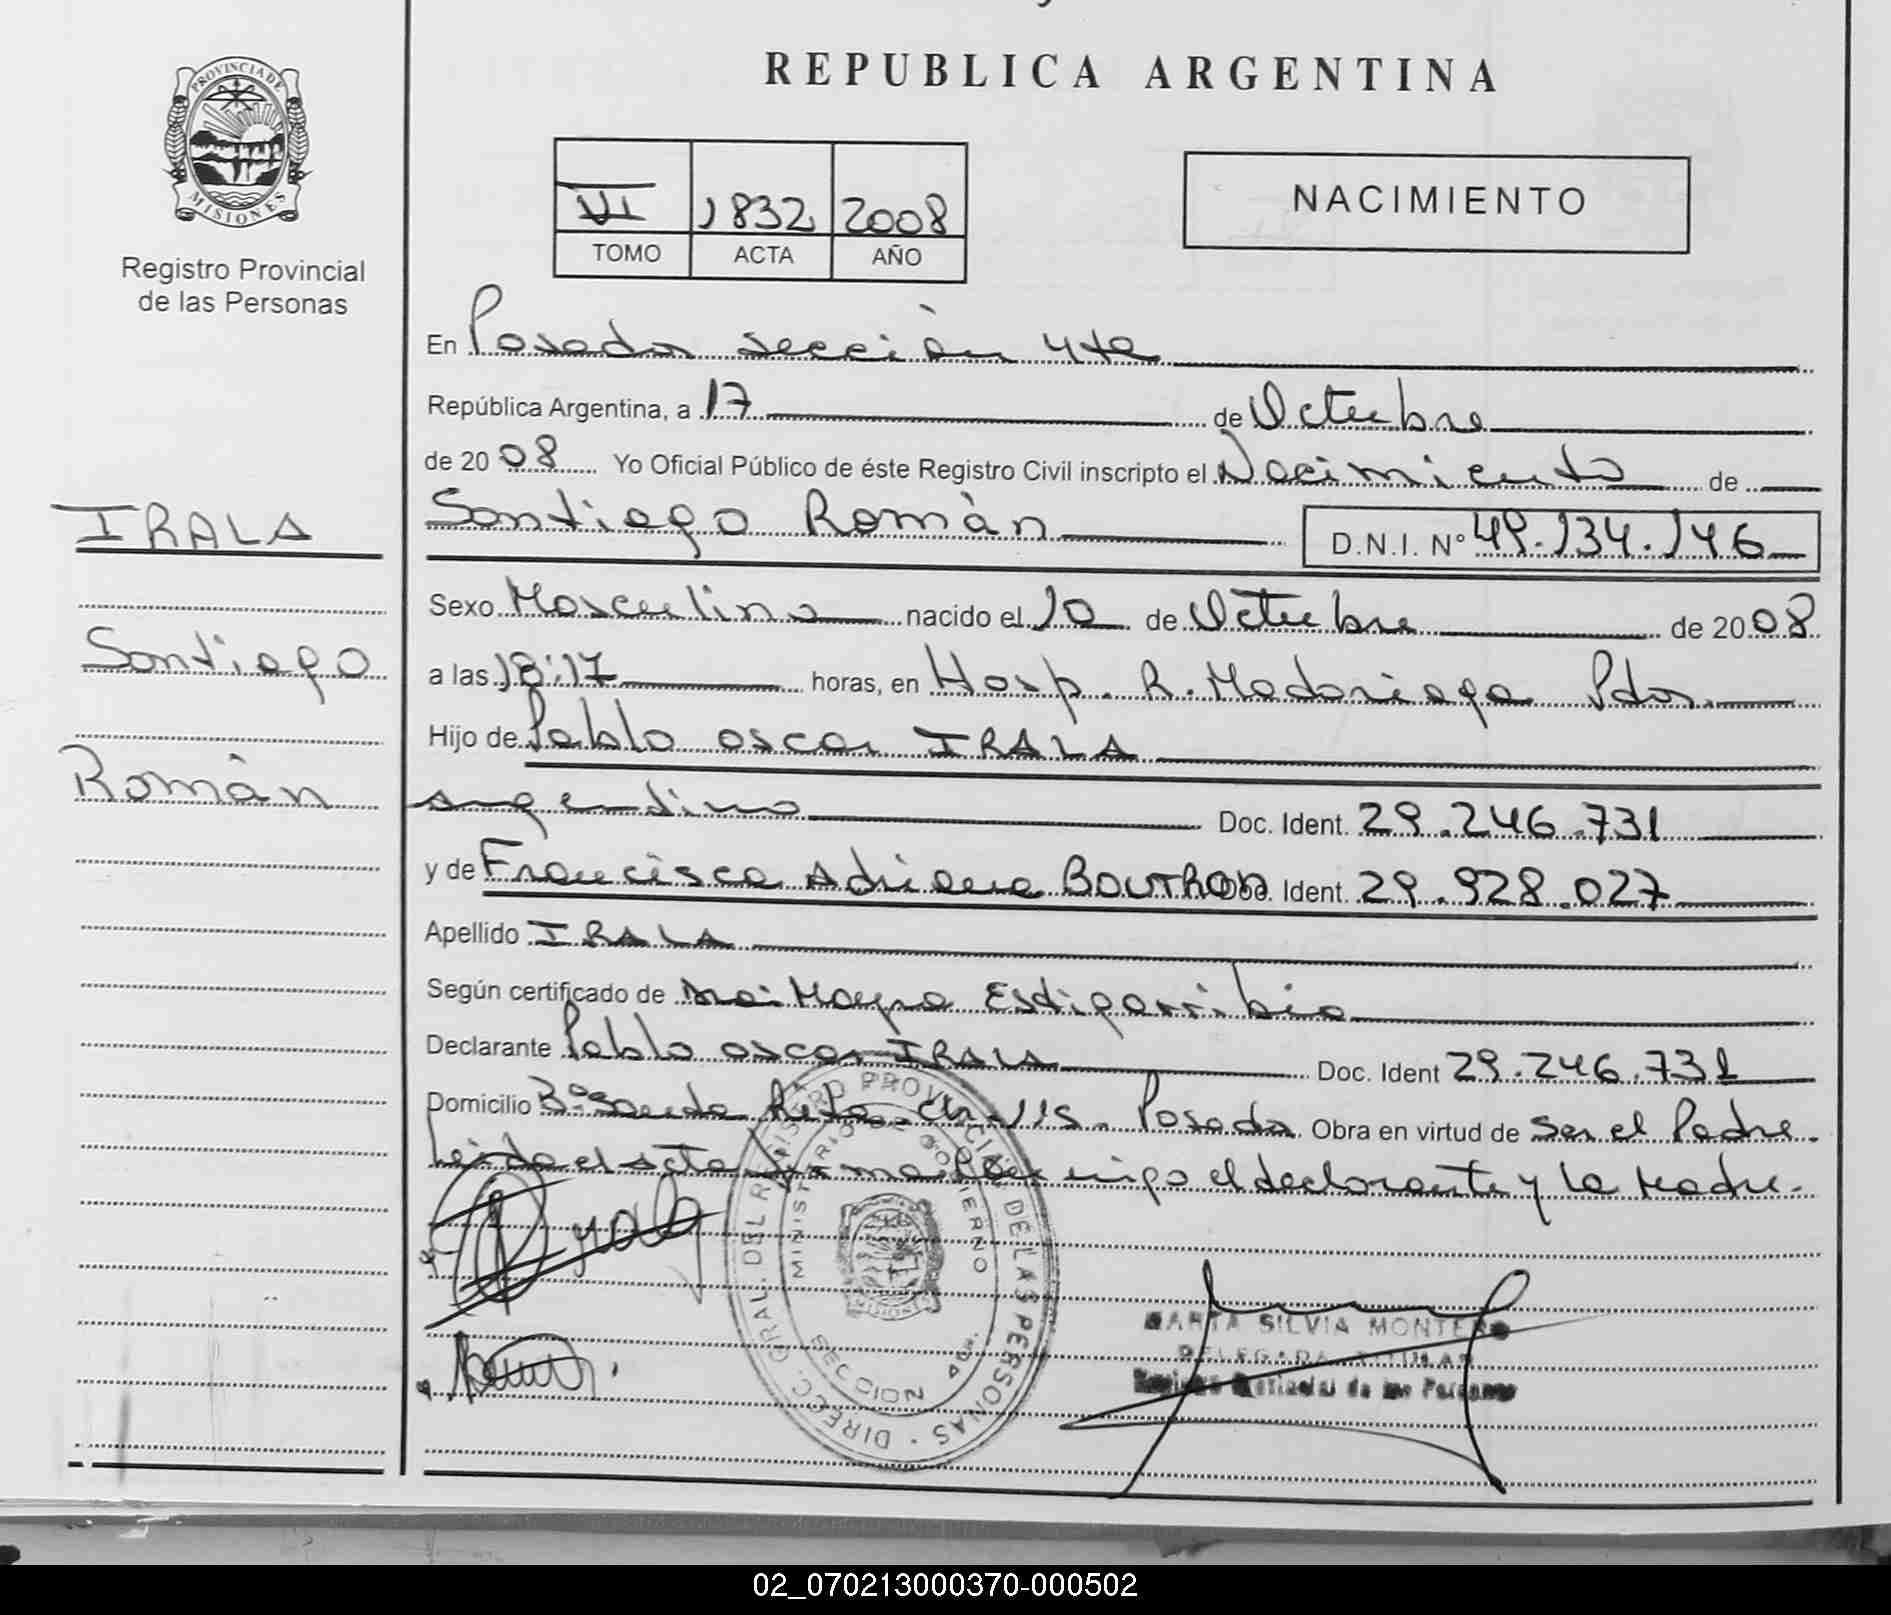 PROVINCIA DE
MISIONES
Registro Provincial
de las Personas
IRALA
Santiago
Román
REPUBLICA ARGENTINA
VI 1832 2008
TOMO ACTA AÑO
NACIMIENTO
En Posadas sección 4ta
República Argentina, a 17 de Octubre
de 2008 Yo Oficial Público de éste Registro Civil inscripto el Nacimiento de
Santiago Román D.N.I. Nº 49.134.146
Sexo Masculino nacido el 10 de Octubre de 2008
a las 18:17 horas, en Hosp. R. Madariaga Pdas.
Hijo de Pablo oscar IRALA
argentino Doc. Ident. 29.246.731
y de Francisca Adriana BOUTHON Doc. Ident. 29.928.027
Apellido IRALA
Según certificado de Mayra Estigarribia
Declarante Pablo oscar IRALA Doc. Ident 29.246.731
Domicilio Bº Santa Rita Posadas Obra en virtud de Ser el Padre.
Leida el acta firma conmigo el declarante y la Madre.
DIREC. GRAL. DEL REGISTRO PROVINCIAL DE LAS PERSONAS
MINISTERIO DE GOBIERNO
MISIONES
SECCION 4ta.
MARTA SILVIA MONTERO
DELEGADA TITULAR
Registro Provincial de las Personas
02_070213000370-000502